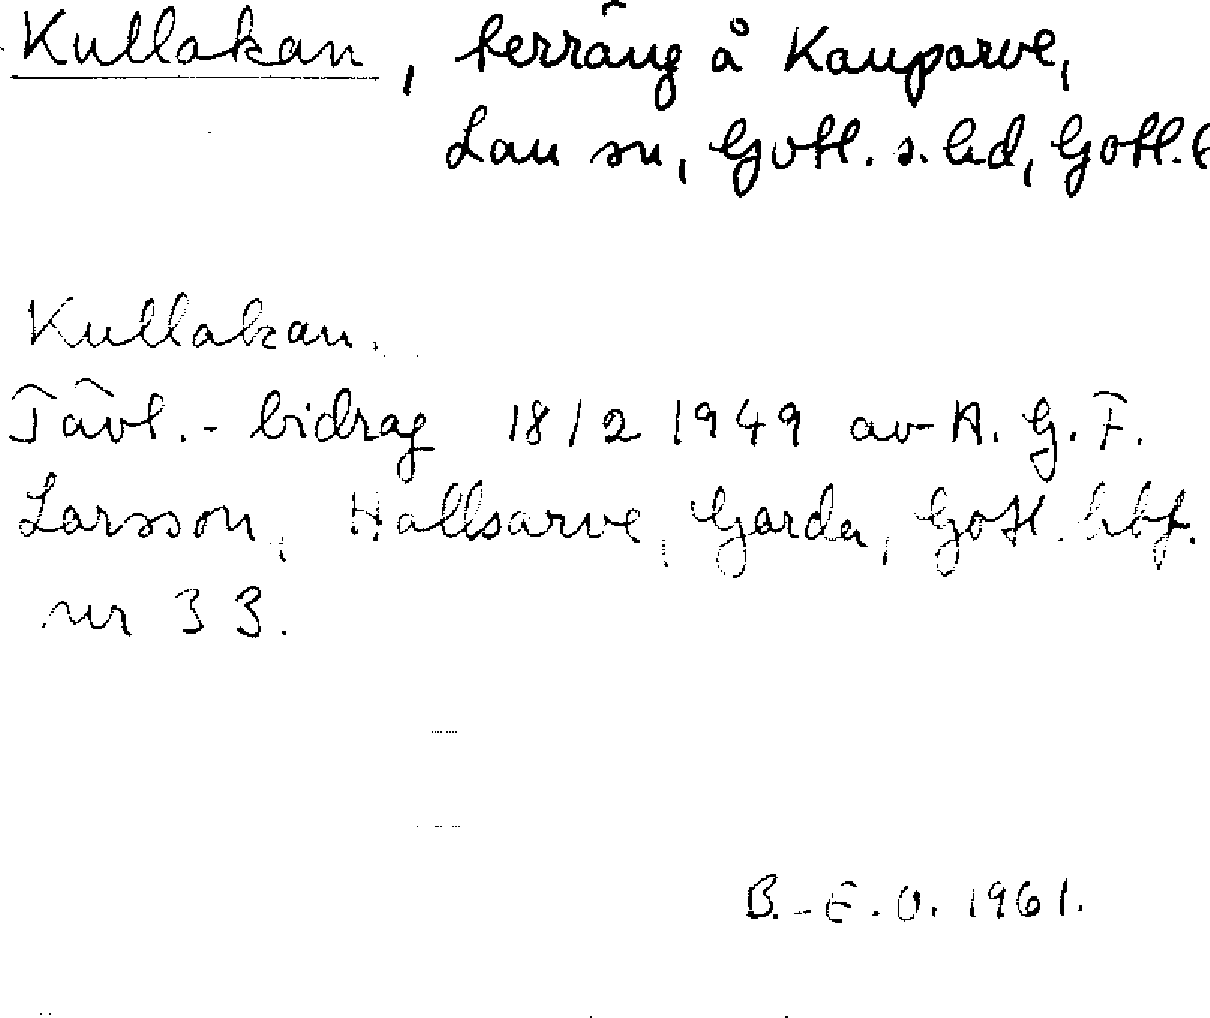 Kullakan, terräng å Kauparve,
Lau sn, Gotl. s. hd, Gotl.
Kullakan.
Tävl.-bidrag 18/2 1949 av A. G. F.
Larsson, Hallsarve, Garda, Gotl. hbf.
nr 33.
B.-E. O. 1961.